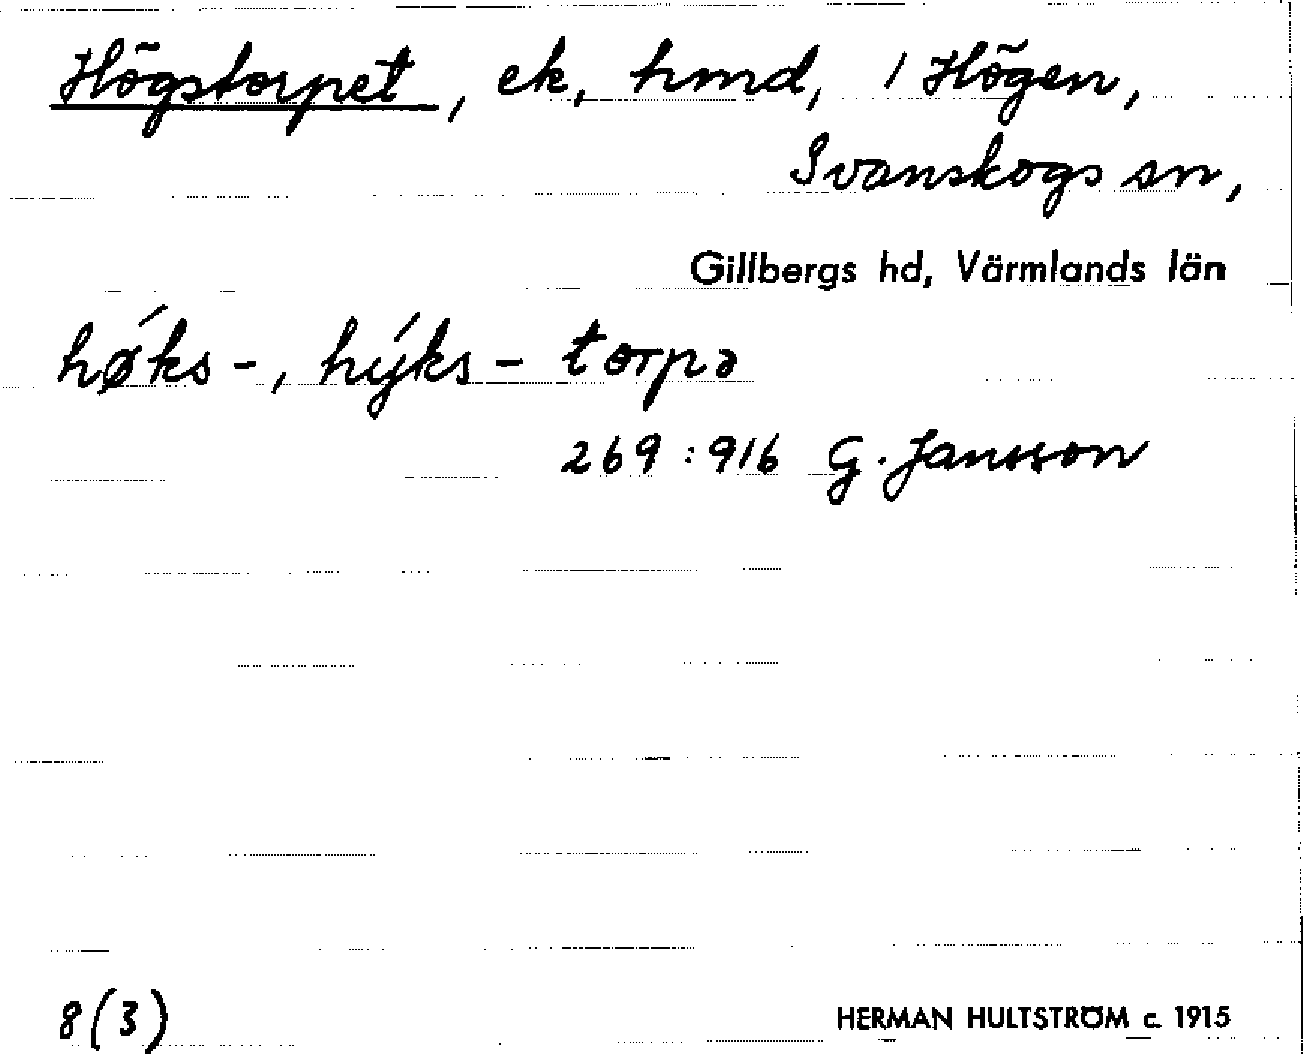 Högstorpet, ek, hmd, 1 Högen,
Svanskogs sn,
Gillbergs hd, Värmlands län
hø´ks-, hý́ks- torpə
269:916 G. Jansson
8(3)
HERMAN HULTSTRÖM c. 1915